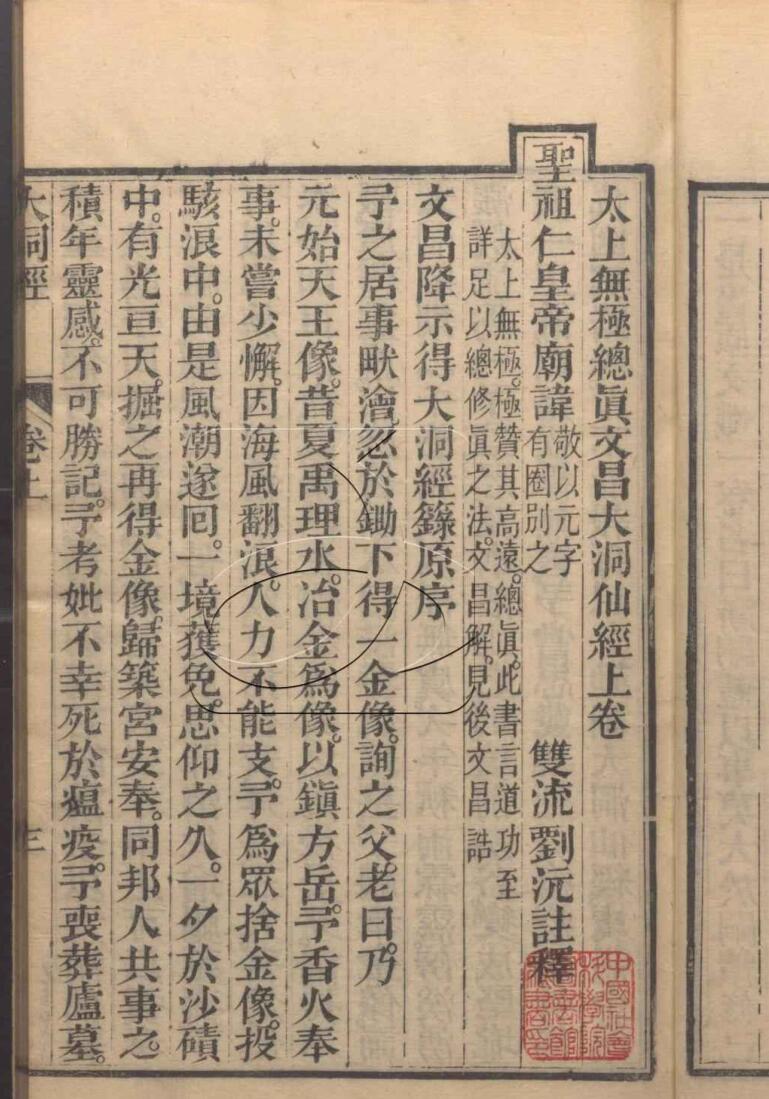 太上無極總眞文昌大洞仙經上卷
聖祖仁皇帝廟諱敬以元字有圈別之 雙流劉沅註釋
太上無極。極贊其高遠。總眞。此書言道功至
詳足以總修眞之法。文昌解。見後文昌誥
文昌降示得大洞經籙原序
予之居事畎澮。忽於鋤下得一金像。詢之父老。曰。乃
元始天王像。昔夏禹理水。冶金爲像。以鎭方岳。予香火奉
事。未嘗少懈。因海風翻浪。人力不能支。予爲眾捨金像。投
駭浪中。由是風潮遂回。一境獲免。思仰之久。一夕於沙磧
中。有光亘天。掘之再得金像。歸築宮安奉。同邦人共事之。
積年靈感。不可勝記。予考妣不幸死於瘟疫。予喪葬廬墓。
大洞經 卷上 三
中國社會科學院圖書館藏書印